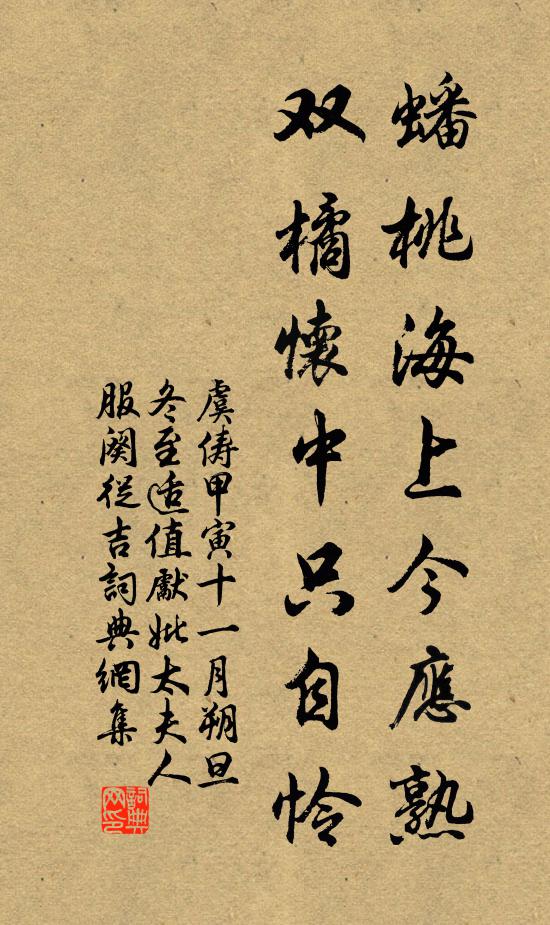 蟠桃海上今應熟
双橘懷中只自怜
虞儔甲寅十一月朔旦
冬至适值獻妣太夫人
服闋從吉詞典網集
詞典网印